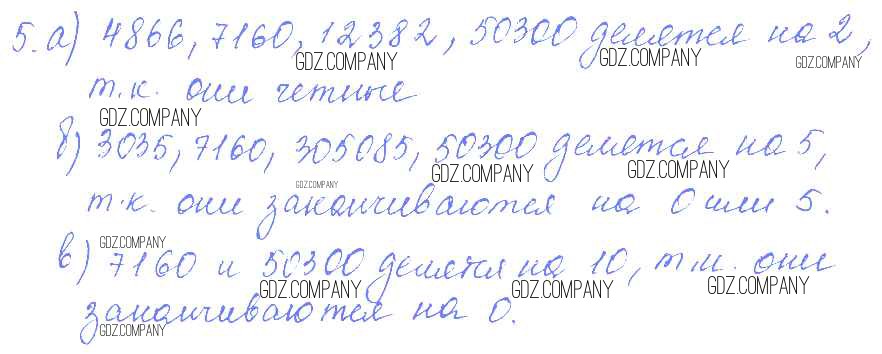 5. а) 4866, 7160, 12382, 50300 делятся на 2,
GDZ.COMPANY GDZ.COMPANY GDZ.COMPANY
т.к. они четные
GDZ.COMPANY
б) 3035, 7160, 305085, 50300 делятся на 5,
GDZ.COMPANY GDZ.COMPANY
GDZ.COMPANY
т.к. они заканчиваются на 0 или 5.
GDZ.COMPANY
в) 7160 и 50300 делятся на 10, т.к. они
GDZ.COMPANY GDZ.COMPANY GDZ.COMPANY
заканчиваются на 0.
GDZ.COMPANY